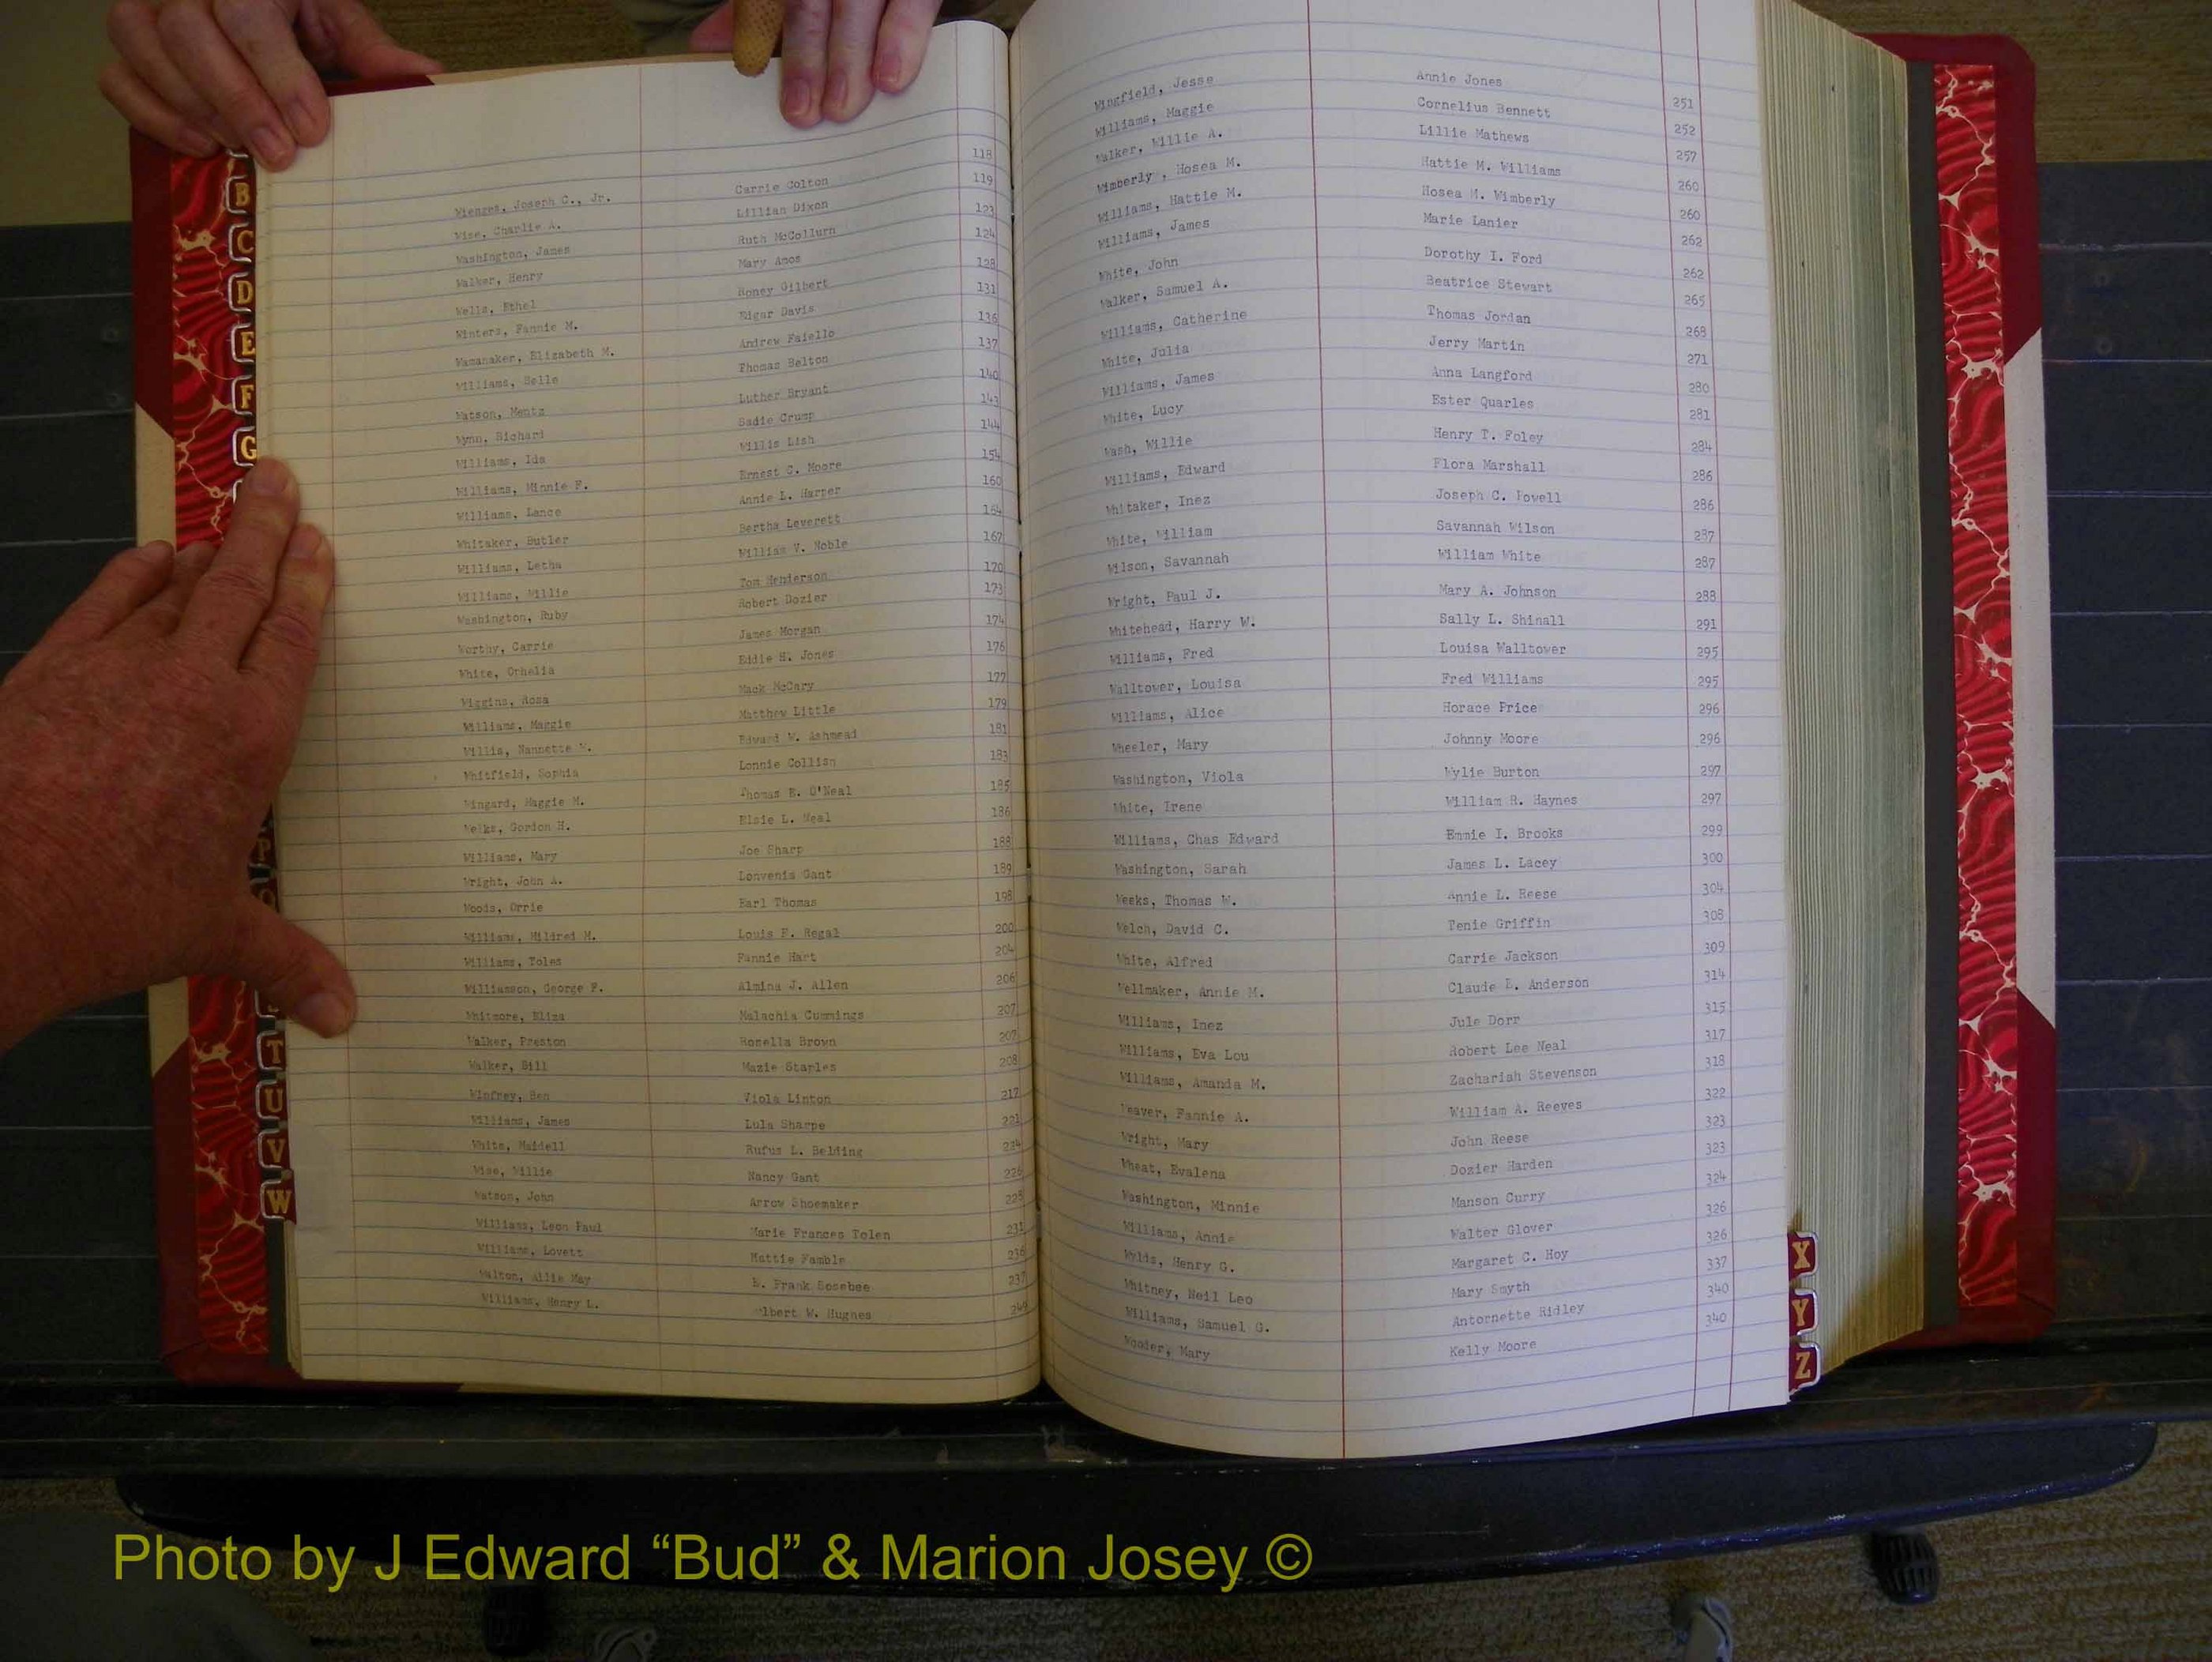 Wienges, Joseph C., Jr. Carrie Colton 118
Wise, Charlie A. Lillian Dixon 119
Washington, James Ruth McCollurn 123
Walker, Henry Mary Amos 124
Wells, Ethel Roney Gilbert 128
Winters, Fannie M. Edgar Davis 131
Wamanaker, Elizabeth M. Andrew Faiello 136
Williams, Belle Thomas Belton 137
Watson, Mentz Luther Bryant 140
Wynn, Richard Sadie Crump 143
Williams, Ida Willis Lish 144
Williams, Minnie F. Ernest C. Moore 154
Williams, Lance Annie L. Harper 160
Whitaker, Butler Bertha Leverett 164
Williams, Letha William V. Noble 167
Williams, Willie Tom Henderson 170
Washington, Ruby Robert Dozier 173
Worthy, Carrie James Morgan 174
White, Ophelia Eddie H. Jones 176
Wiggins, Rosa Mack McCary 177
Williams, Maggie Matthew Little 179
Willis, Nannette W. Edward W. Ashmead 181
Whitfield, Sophia Lonnie Collian 183
Wingard, Maggie M. Thomas E. O'Neal 185
Welks, Gordon H. Elsie L. Neal 186
Williams, Mary Joe Sharp 188
Wright, John A. Lonvenia Gant 189
Woods, Orrie Earl Thomas 198
Williams, Mildred M. Louis E. Regal 200
Williams, Toles Fannie Hart 204
Williamson, George F. Almina J. Allen 206
Whitmore, Eliza Malachia Cummings 207
Walker, Preston Rosella Brown 207
Walker, Bill Mazie Staples 208
Winfrey, Ben Viola Linton 217
Williams, James Lula Sharpe 221
White, Maidell Rufus L. Belding 224
Wise, Willie Nancy Gant 226
Watson, John Arrow Shoemaker 228
Williams, Leon Paul Marie Frances Tolen 231
Williams, Lovett Mattie Famble 236
Walton, Allie May B. Frank Sosebee 237
Williams, Henry L. Albert W. Hughes 249
Wingfield, Jesse Annie Jones 251
Williams, Maggie Cornelius Bennett 252
Walker, Willie A. Lillie Mathews 257
Wimberly, Hosea M. Hattie M. Williams 260
Williams, Hattie M. Hosea M. Wimberly 260
Williams, James Marie Lanier 262
White, John Dorothy I. Ford 262
Walker, Samuel A. Beatrice Stewart 265
Williams, Catherine Thomas Jordan 268
White, Julia Jerry Martin 271
Williams, James Anna Langford 280
White, Lucy Ester Quarles 281
Wash, Willie Henry T. Foley 284
Williams, Edward Flora Marshall 286
Whitaker, Inez Joseph C. Powell 286
White, William Savannah Wilson 287
Wilson, Savannah William White 287
Wright, Paul J. Mary A. Johnson 288
Whitehead, Harry W. Sally L. Shinall 291
Williams, Fred Louisa Walltower 295
Walltower, Louisa Fred Williams 295
Williams, Alice Horace Price 296
Wheeler, Mary Johnny Moore 296
Washington, Viola Wylie Burton 297
White, Irene William R. Haynes 297
Williams, Chas Edward Emmie I. Brooks 299
Washington, Sarah James L. Lacey 300
Weeks, Thomas W. Annie L. Reese 304
Welch, David C. Tenie Griffin 308
White, Alfred Carrie Jackson 309
Wellmaker, Annie M. Claude B. Anderson 314
Williams, Inez Jule Dorr 315
Williams, Eva Lou Robert Lee Neal 317
Williams, Amanda M. Zachariah Stevenson 318
Weaver, Fannie A. William A. Reeves 322
Wright, Mary John Reese 323
Wheat, Evalena Dozier Harden 323
Washington, Minnie Manson Curry 324
Williams, Annie Walter Glover 326
Wylds, Henry G. Margaret C. Hoy 326
Whitney, Neil Leo Mary Smyth 337
Williams, Samuel G. Antornette Ridley 340
Wooder, Mary Kelly Moore 340
B
C
D
E
F
G
P
T
U
V
W
X
Y
Z
Photo by J Edward “Bud” & Marion Josey ©